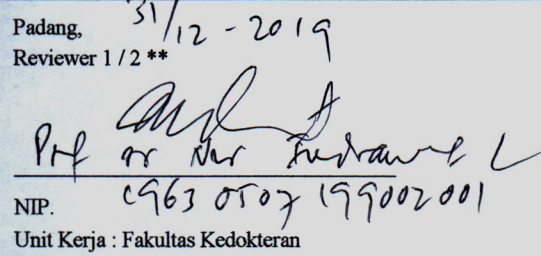 Padang, 31/12 - 2019
Reviewer 1 / 2 **
Prof dr Nur Indrawaty L
NIP. 19630507 199002 001
Unit Kerja : Fakultas Kedokteran